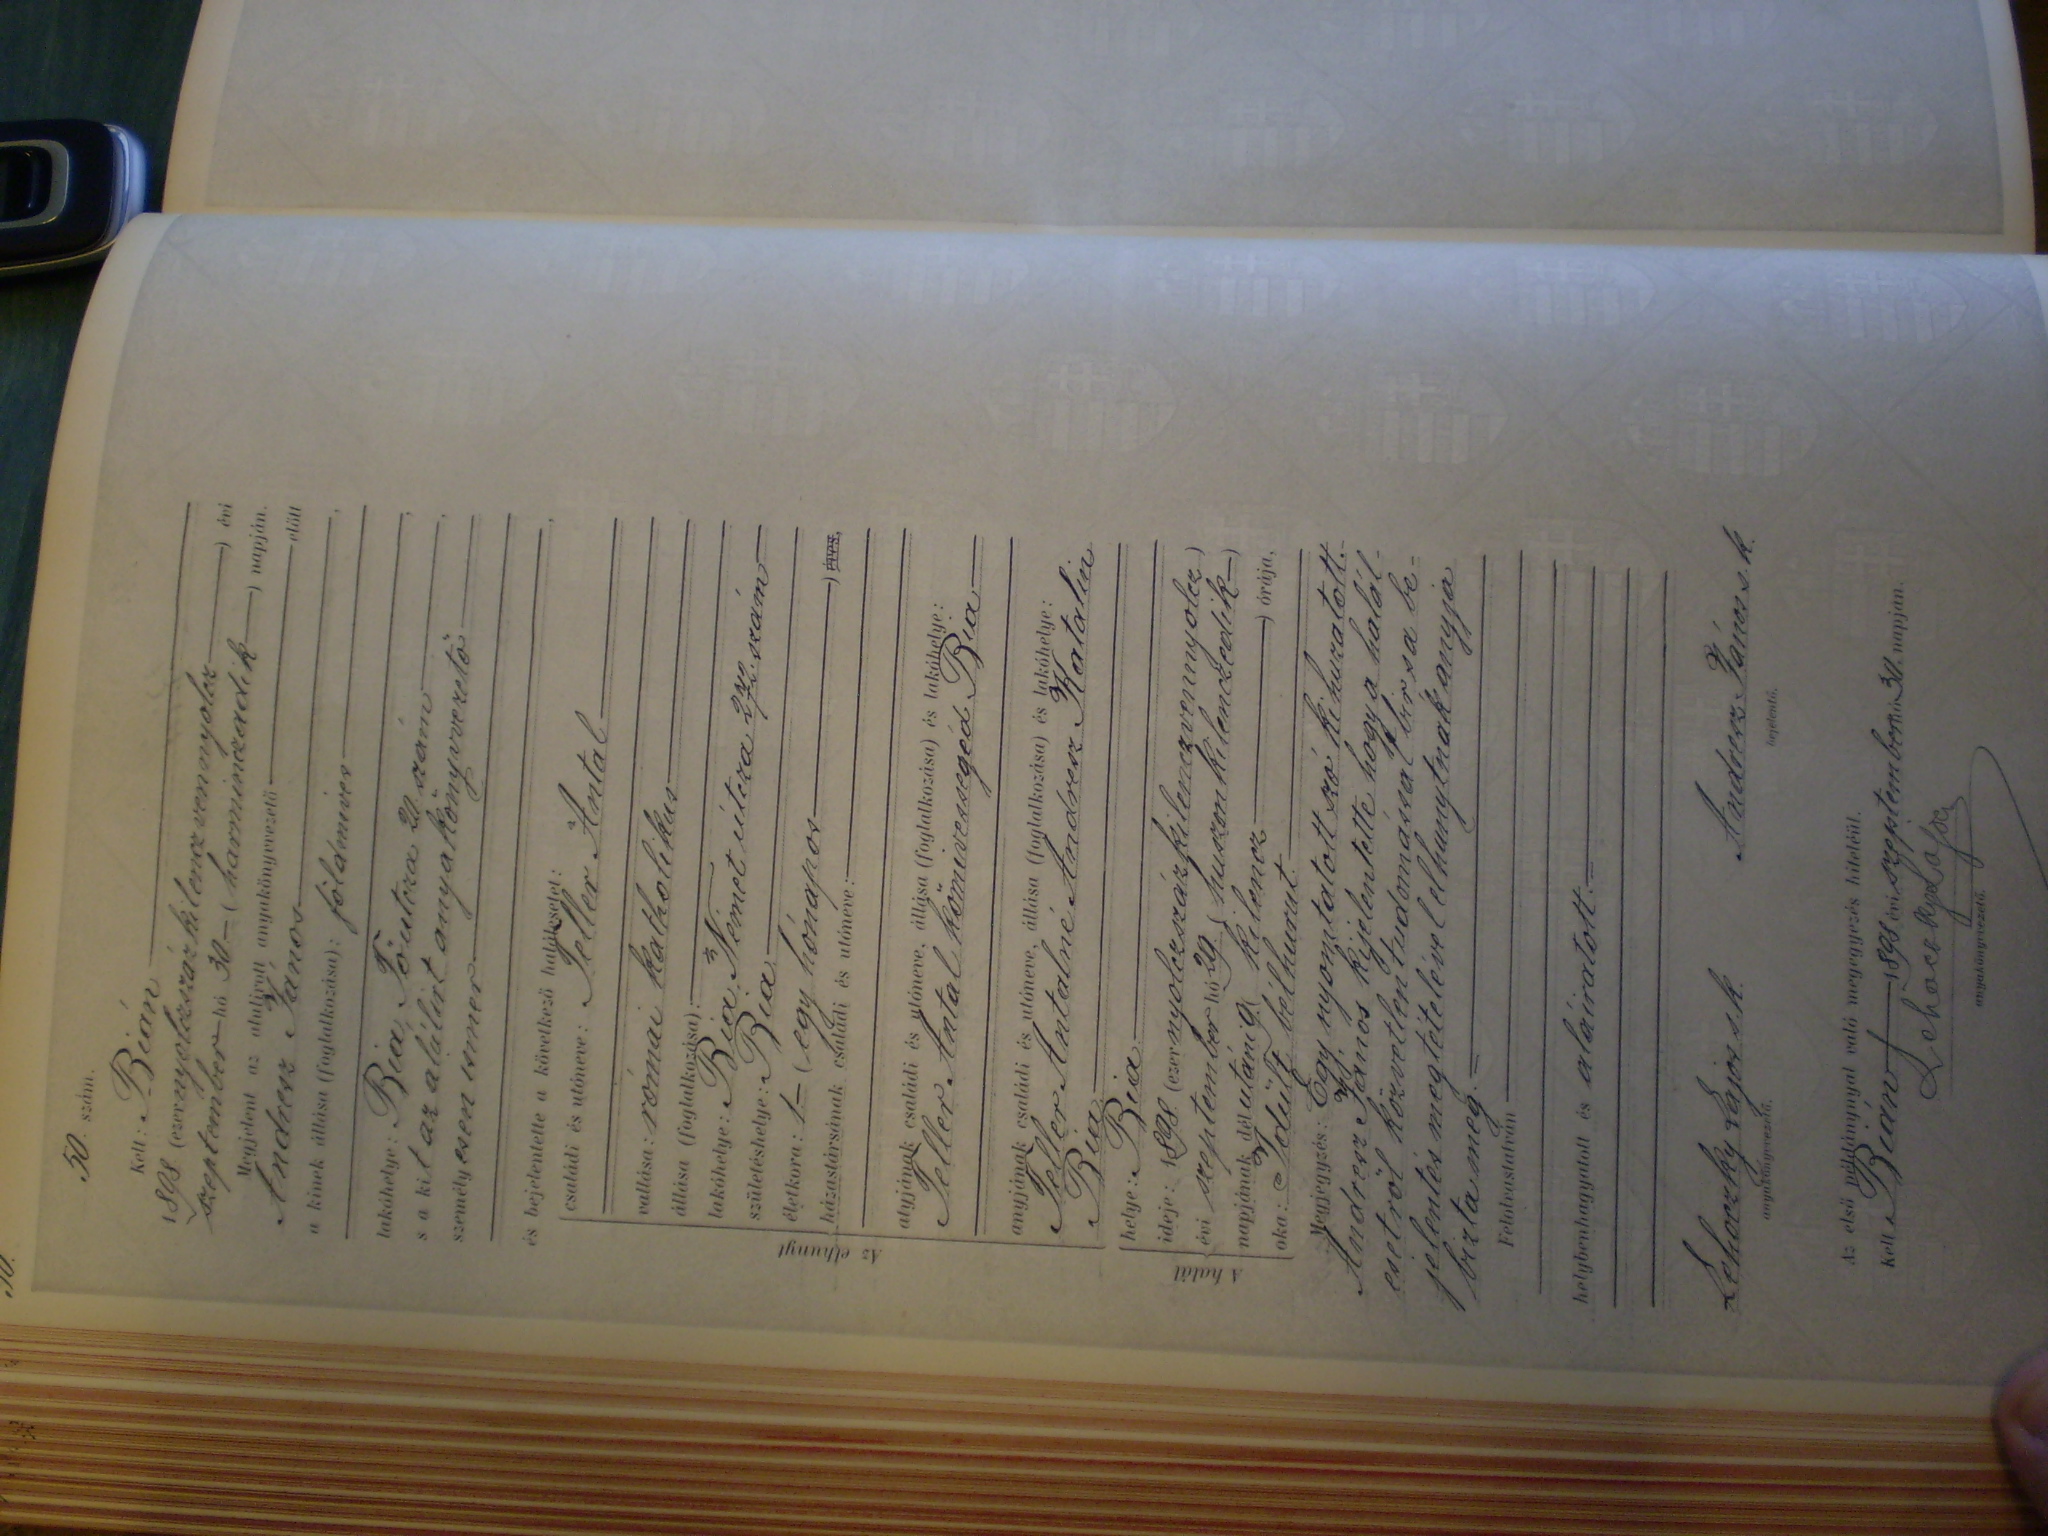 50. szám.
Kelt: Bián
1898 (ezernyolczszázkilenczvennyolcz ) évi
szeptember hó 30 - (harminczadik ) napján.
Megjelent az alulirott anyakönyvvezető előtt
Andresz János
a kinek állása (foglalkozása): földmives
lakóhelye: Bia, Főutcza 20 szám
s a kit az alólirt anyakönyvvezető
személyesen ismer
és bejelentette a következő halálesetet:
Az elhunyt
családi és utóneve: Teller Antal
vallása: római katholikus
állása (foglalkozása):
lakóhelye: Bia, Német útcza szám
születéshelye: Bia
életkora: 1 - (egy hónapos )
házastársának családi és utóneve:
atyjának családi és utóneve, állása (foglalkozása) és lakóhelye:
Teller Antal kőmivessegéd Bia
anyjának családi és utóneve, állása (foglalkozása) és lakóhelye:
Teller Antalné Andresz Katalin
Bia
A halál
helye: Bia
ideje: 1898 (ezernyolczszázkilenczvennyolcz)
évi szeptember hó 29 (huszonkilenczedik )
napjának dél utáni 9 ( kilencz ) órája,
oka: Idült bélhurut
Megjegyzés: Egy nyomtatott szó kihuzatott.
Andresz János kijelentette hogy a halál-
esetről közvetlen tudomással bir s a be-
jelentés megtételével elhunytnak anyja
bizta meg. -
Felolvastatván
helybenhagyatott és aláiratott. -
Lehoczky Lajos s. k. Andresz János s. k.
anyakönyvvezető. bejelentő.
Az első példánynyal való megegyezés hiteléül.
Kelt Bián 1898 évi szeptember hó 30. napján.
Lehoczky Lajos
anyakönyvvezető.